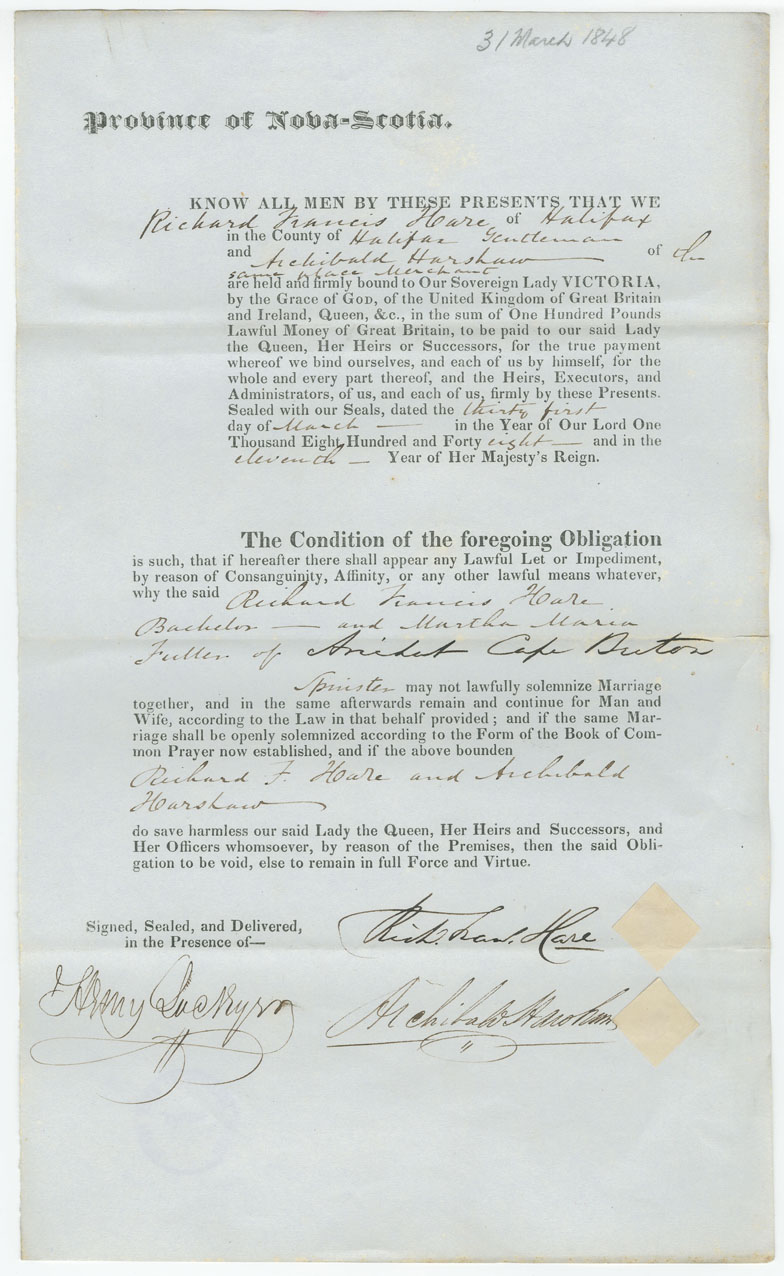 31 March 1848
Province of Nova-Scotia.
KNOW ALL MEN BY THESE PRESENTS THAT WE
Richard Francis Hare of Halifax
in the County of Halifax Gentleman
and Archibald Harshaw of the
same place Merchant
are held and firmly bound to Our Sovereign Lady VICTORIA,
by the Grace of GOD, of the United Kingdom of Great Britain
and Ireland, Queen, &c., in the sum of One Hundred Pounds
Lawful Money of Great Britain, to be paid to our said Lady
the Queen, Her Heirs or Successors, for the true payment
whereof we bind ourselves, and each of us by himself, for the
whole and every part thereof, and the Heirs, Executors, and
Administrators, of us, and each of us, firmly by these Presents.
Sealed with our Seals, dated the thirty first
day of March — in the Year of Our Lord One
Thousand Eight Hundred and Forty eight — and in the
eleventh — Year of Her Majesty's Reign.
The Condition of the foregoing Obligation
is such, that if hereafter there shall appear any Lawful Let or Impediment,
by reason of Consanguinity, Affinity, or any other lawful means whatever,
why the said Richard Francis Hare
Bachelor — and Martha Maria
Fuller of Cape Breton
Spinster may not lawfully solemnize Marriage
together, and in the same afterwards remain and continue for Man and
Wife, according to the Law in that behalf provided; and if the same Mar-
riage shall be openly solemnized according to the Form of the Book of Com-
mon Prayer now established, and if the above bounden
Richard F. Hare and Archibald
Harshaw
do save harmless our said Lady the Queen, Her Heirs and Successors, and
Her Officers whomsoever, by reason of the Premises, then the said Obli-
gation to be void, else to remain in full Force and Virtue.
Signed, Sealed, and Delivered,
in the Presence of—
Rich. Fran. Hare
Archibald Harshaw